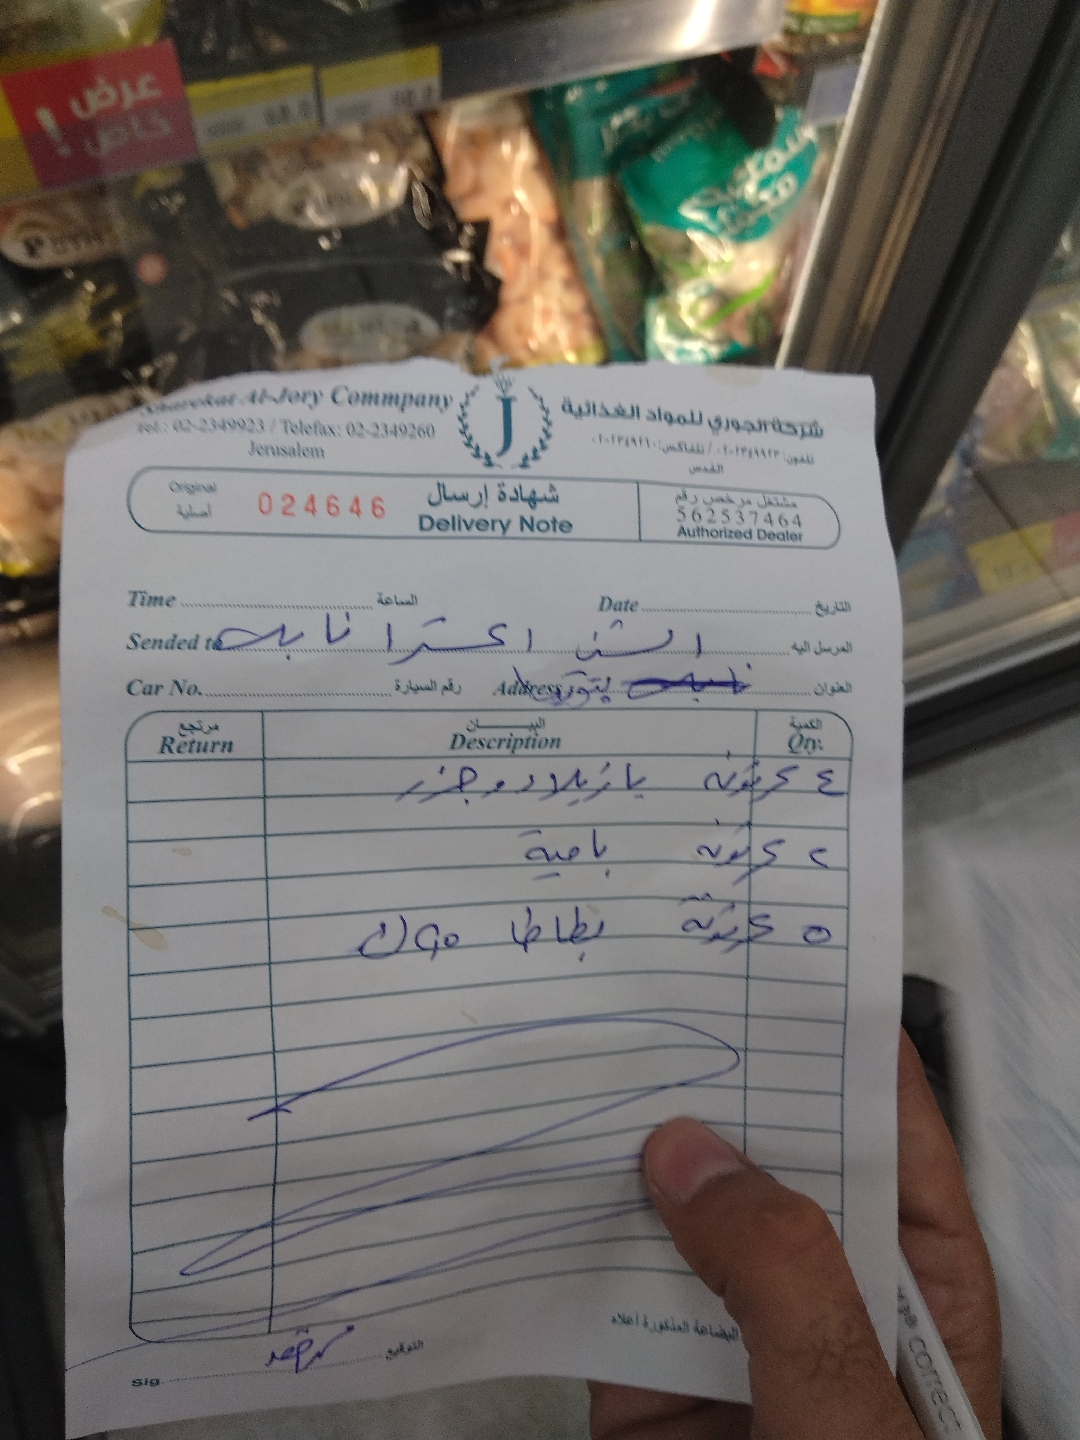 عرض
خاص !
Sharekat Al-Jory Commpany
Tel.: 02-2349923 / Telefax: 02-2349260
Jerusalem
J
شركة الجوري للمواد الغذائية
تلفون: ٠٢-٢٣٤٩٩٢٣ / تلفاكس: ٠٢-٢٣٤٩٢٦٠
القدس
Original
أصلية
024646
شهادة إرسال
Delivery Note
مشتغل مرخص رقم
562537464
Authorized Dealer
Time الساعة Date التاريخ
Sended to اكسترا نابلس المرسل اليه
Car No. رقم السيارة Address العنوان
مرتجع البيـــــان الكمية
Return Description Qty:
٤ كرتونة بازيلا وجزر
٢ كرتونة بامية
٥ كرتونة بطاطا
البضاعة المذكورة أعلاه
Sig التوقيع
correct